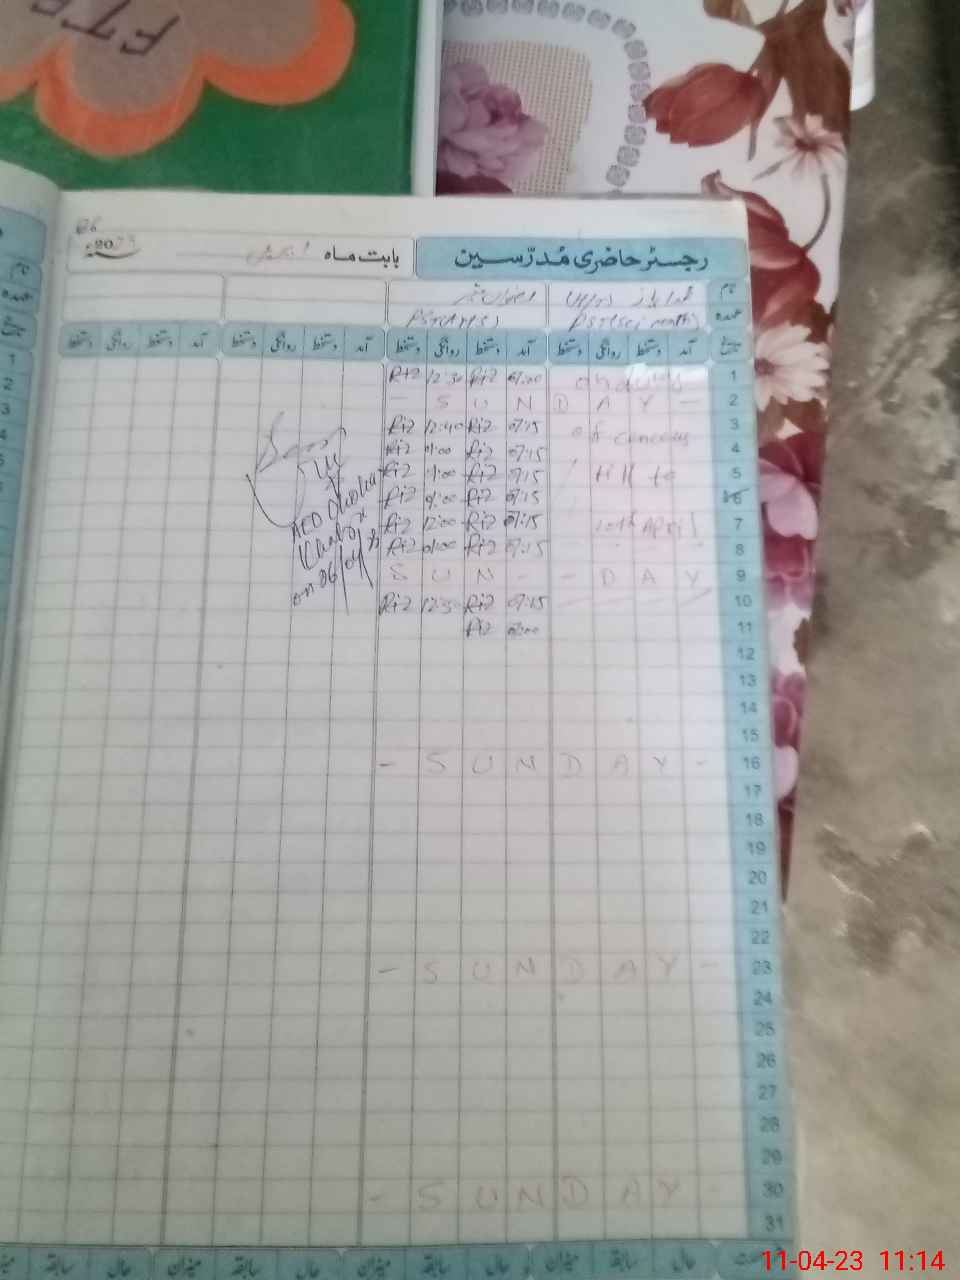 رجسٹر حاضری مُدرّسین
بابت ماہ
2023
نام
عہدہ
PST(Sci math)
PST(Arts)
آمد دستخط روانگی دستخط آمد دستخط روانگی دستخط آمد دستخط روانگی دستخط آمد دستخط روانگی دستخط
1 07:00 Riz 12:30 Riz
on duty
2 - S U N D A Y -
3 07:15 Riz 12:40 Riz
of census
4 07:15 Riz 01:00 Riz
5 07:15 Riz 01:00 Riz
till to
6 07:15 Riz 01:00 Riz
7 07:15 Riz 12:00 Riz
10th April
8 07:15 Riz 01:00 Riz
9 S U N - - D A Y
10 07:15 Riz 12:30 Riz
11 07:00 Riz
12
13
14
15
16 - S U N D A Y -
17
18
19
20
21
22
23 - S U N D A Y -
24
25
26
27
28
29
30 - S U N D A Y -
31
AEO
on 06/04/23
حال سابقہ میزان حال سابقہ میزان حال سابقہ میزان حال سابقہ
11-04-23 11:14